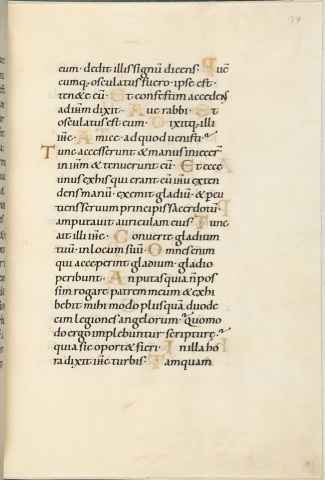 eum· dedit illis signū dicens· Quē
cumq; osculatus fuero· ipse est·
tenete eū· Et confestim accedens
ad ihm̄ dixit· Ave rabbi· Et
osculatus est eum· Dixitq; illi
ihc̄· Amice· ad quod venisti·
Tunc accesserunt & manus iniecer̄
in ihm̄ & tenuerunt eū· Et ecce
unus ex his qui erant cū ihū exten
dens manū· exemit gladiū· & percu
tiens servum principis sacerdotū·
amputavit auriculam eius· Tunc
ait illi ihc̄· Converte gladium
tuū· in locum suū· Omnes enim
qui acceperint gladium· gladio
peribunt· An putas quia n̄ pos
sim rogare patrem meum & exhi
bebit mihi modo plusquā duode
cim legiones angelorum· Quomo
do ergo implebuntur scripturę·
quia sic oport& fieri· In illa ho
ra dixit ihc̄ turbis· Tamquam